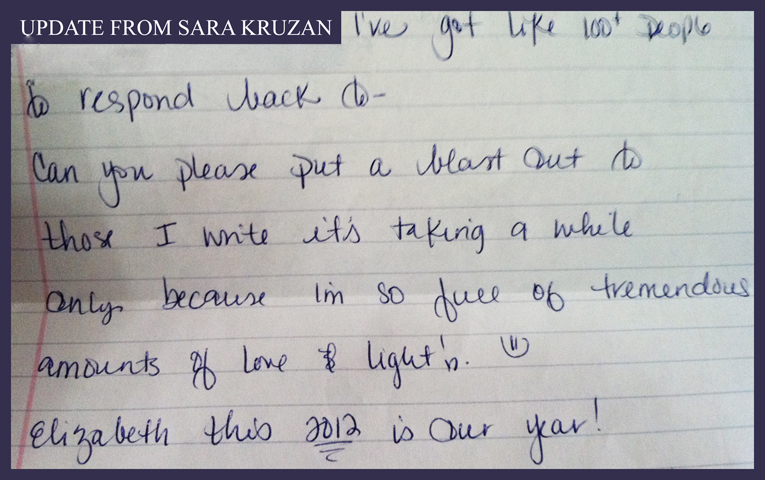 UPDATE FROM SARA KRUZAN I've got like 100+ people
to respond back to-
Can you please put a blast out to
those I write it's taking a while
only because Im so full of tremendous
amounts of love & light'n.
Elizabeth this 2012 is our year!